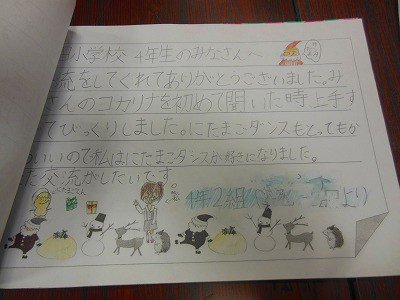 小学校 4年生のみなさんへ
流をしてくれてありがとうございました。み
さんのコカリナを初めて聞いた時上手す
てびっくりしました。にたまごダンスもとってもか
いいので私はにたまごダンスが好きになりました。
た交流がしたいです
4年2組
より